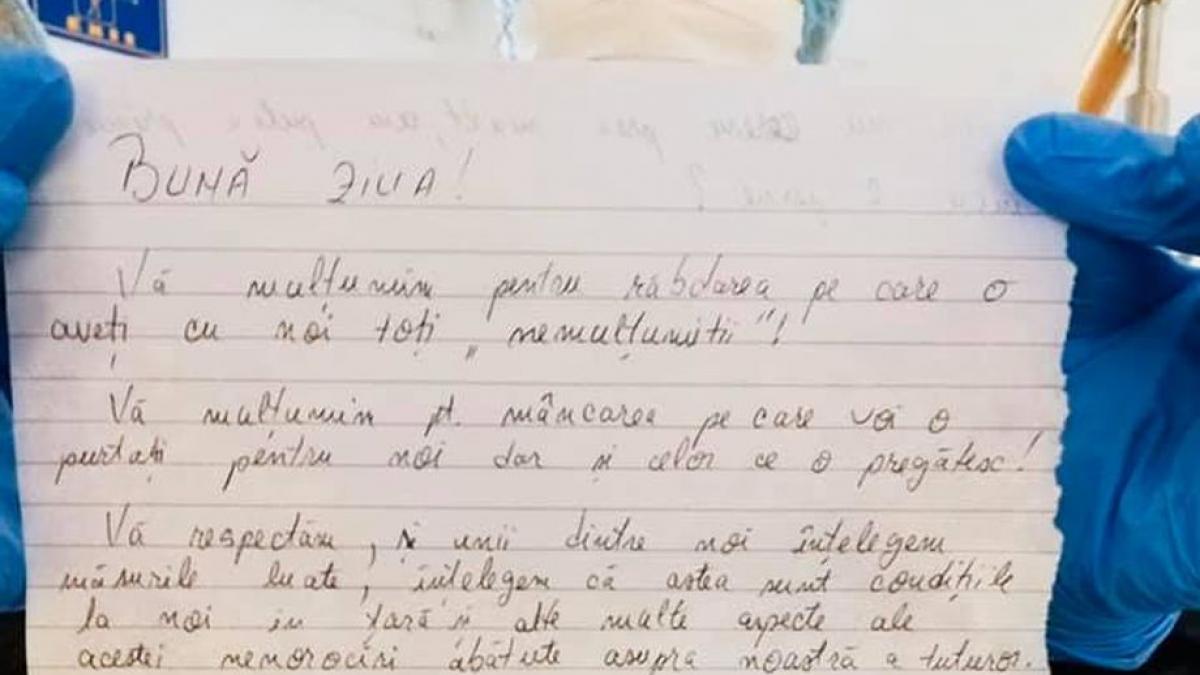 BUNĂ ZIUA!
Vă mulțumim pentru răbdarea pe care o
aveți cu noi toți „nemulțumitii"!
Vă mulțumim pt. mâncarea pe care voi o
purtați pentru noi dar și celor ce o pregătesc!
Vă respectăm, și unii dintre noi înțelegem
măsurile luate, înțelegem că astea sunt condițiile
la noi in țară și alte multe aspecte ale
acestei nenorociri abătute asupra noastră a tuturor.